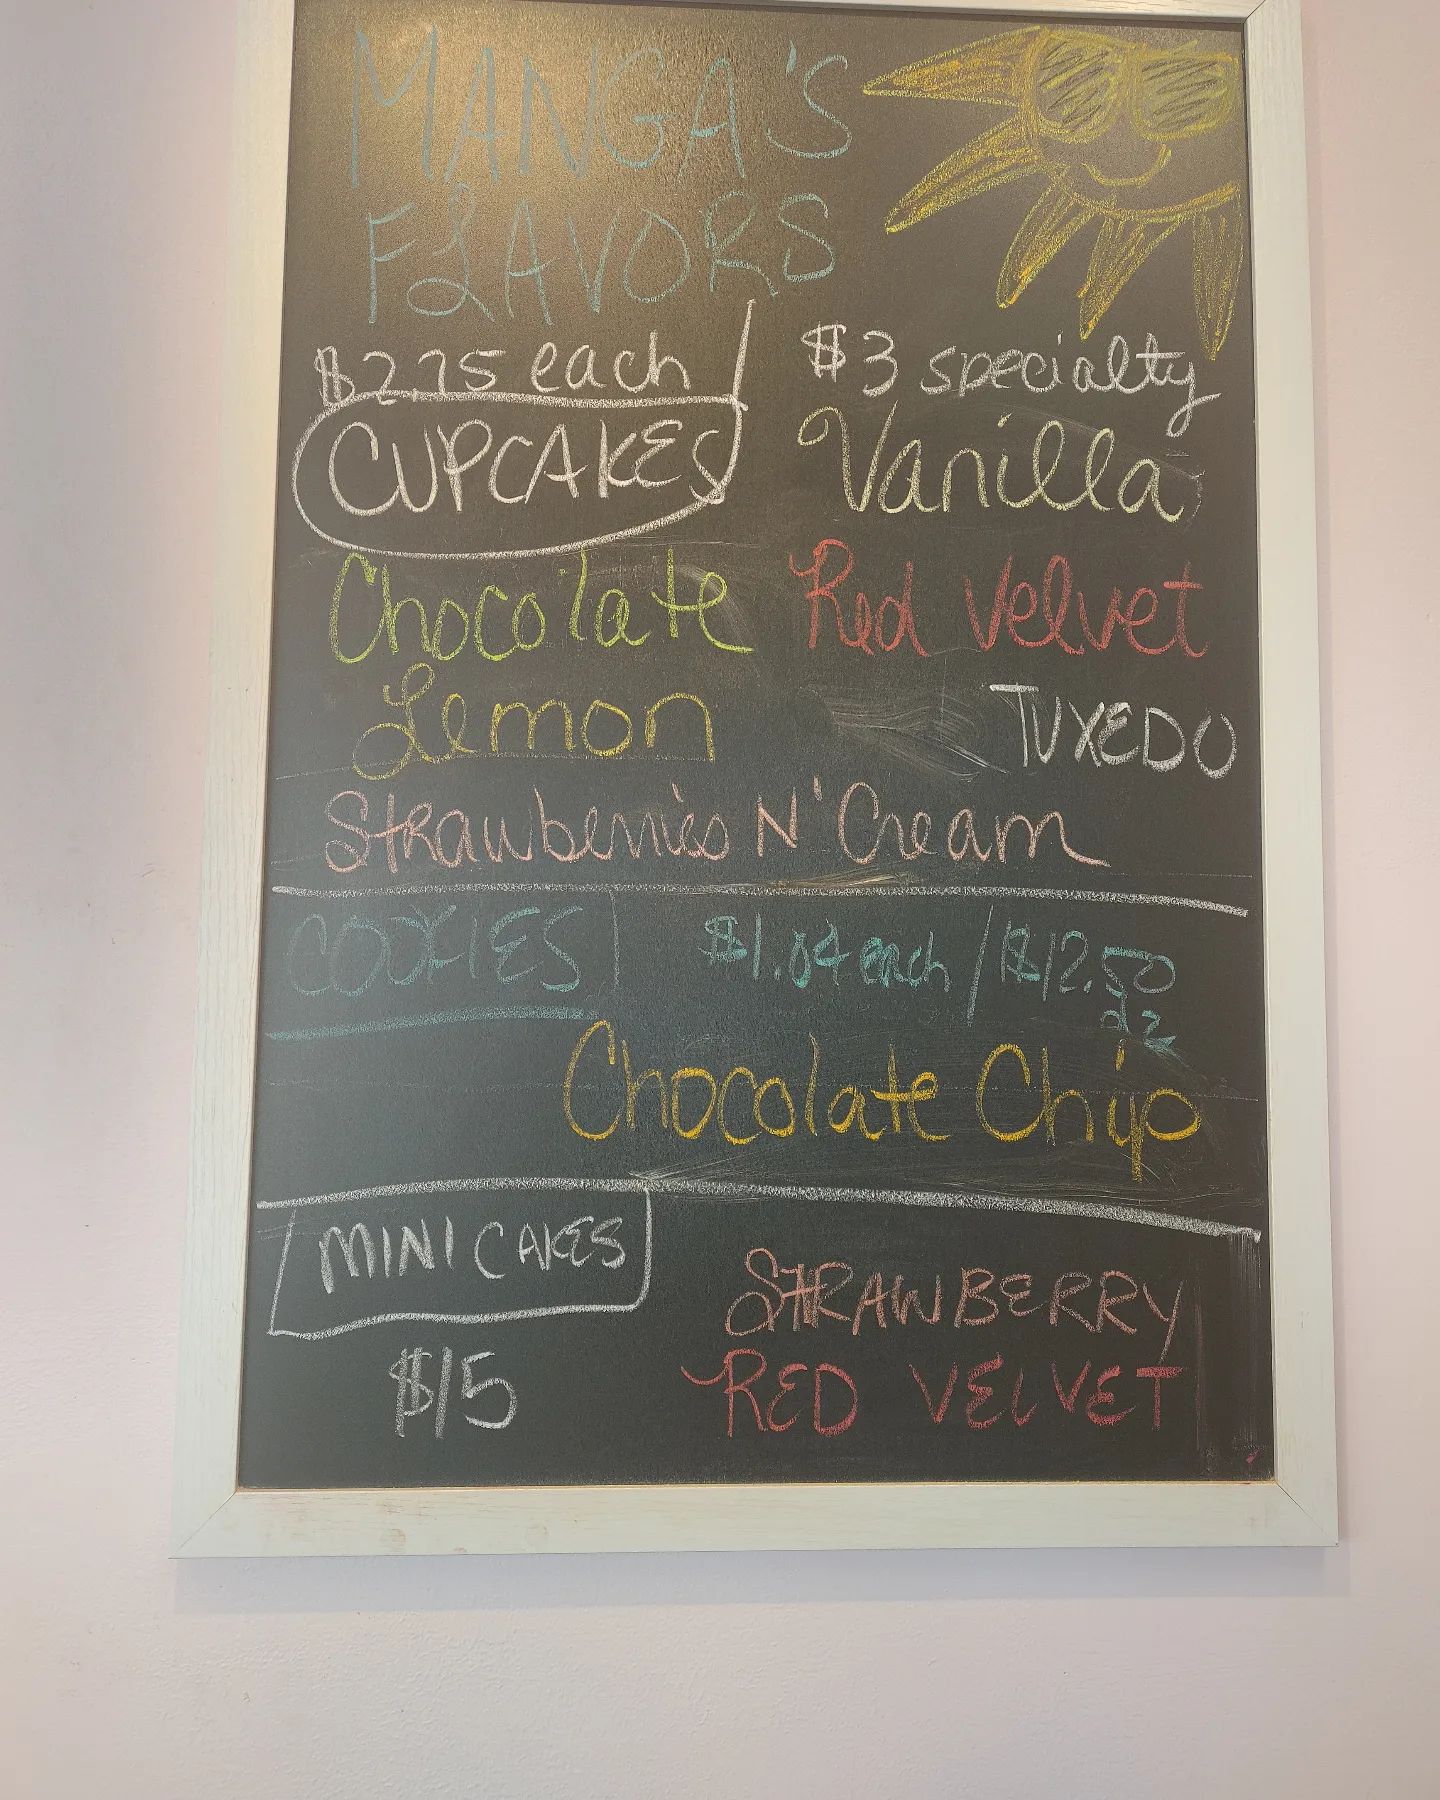 MANGA'S
FLAVORS
$2.75 each $3 specialty
CUPCAKES Vanilla
Chocolate Red Velvet
Lemon TUXEDO
Strawberries N' Cream
COOKIES $1.04 each / $12.50
dz
Chocolate Chip
MINI CAKES
STRAWBERRY
$15 RED VELVET